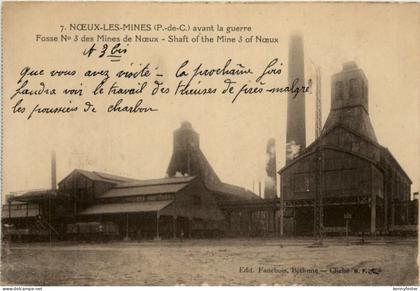 7. NŒUX-LES-MINES (P.-de-C.) avant la guerre
Fosse No 3 des Mines de Nœux - Shaft of the Mine 3 of Nœux
No 3 bis
Que vous avez visité - La prochaine fois
faudra voir le travail des trieuses de près - malgré
les poussiers de charbon
Edit. Fauchois, Béthune - Cliché
kennyfoster
delcampe.net